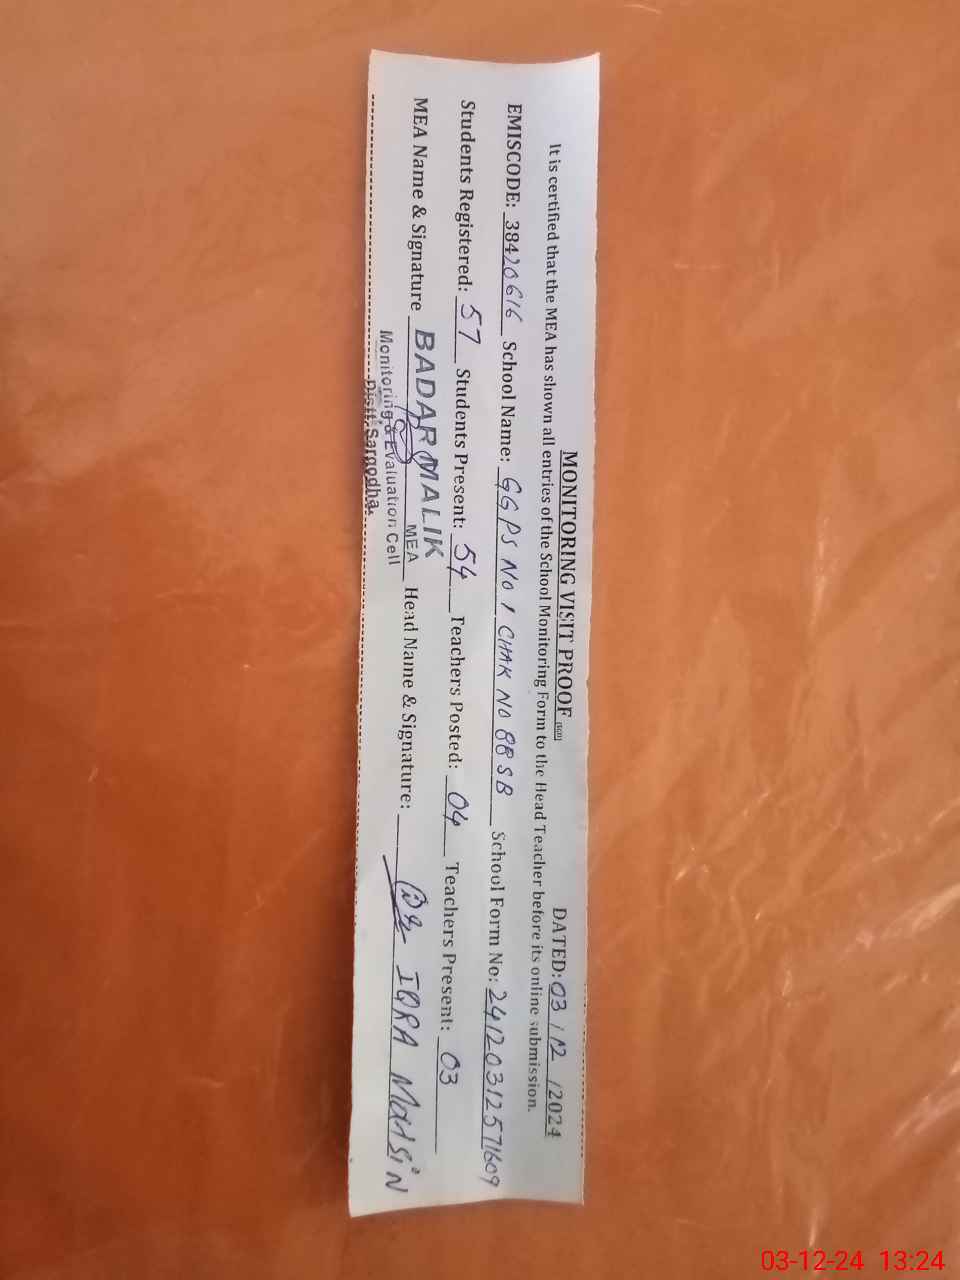 MONITORING VISIT PROOF DATED: 03 / 12 /2024
It is certified that the MEA has shown all entries of the School Monitoring Form to the Head Teacher before its online submission.
EMISCODE: 38420616 School Name: GGPS No 1 CHAK No 88 SB School Form No: 2412031257 1609
Students Registered: 57 Students Present: 54 Teachers Posted: 04 Teachers Present: 03
MEA Name & Signature BADAR MALIK MEA Head Name & Signature: IQRA MohsiN
Monitoring & Evaluation Cell
Distt, Sargodha.
03-12-24 13:24